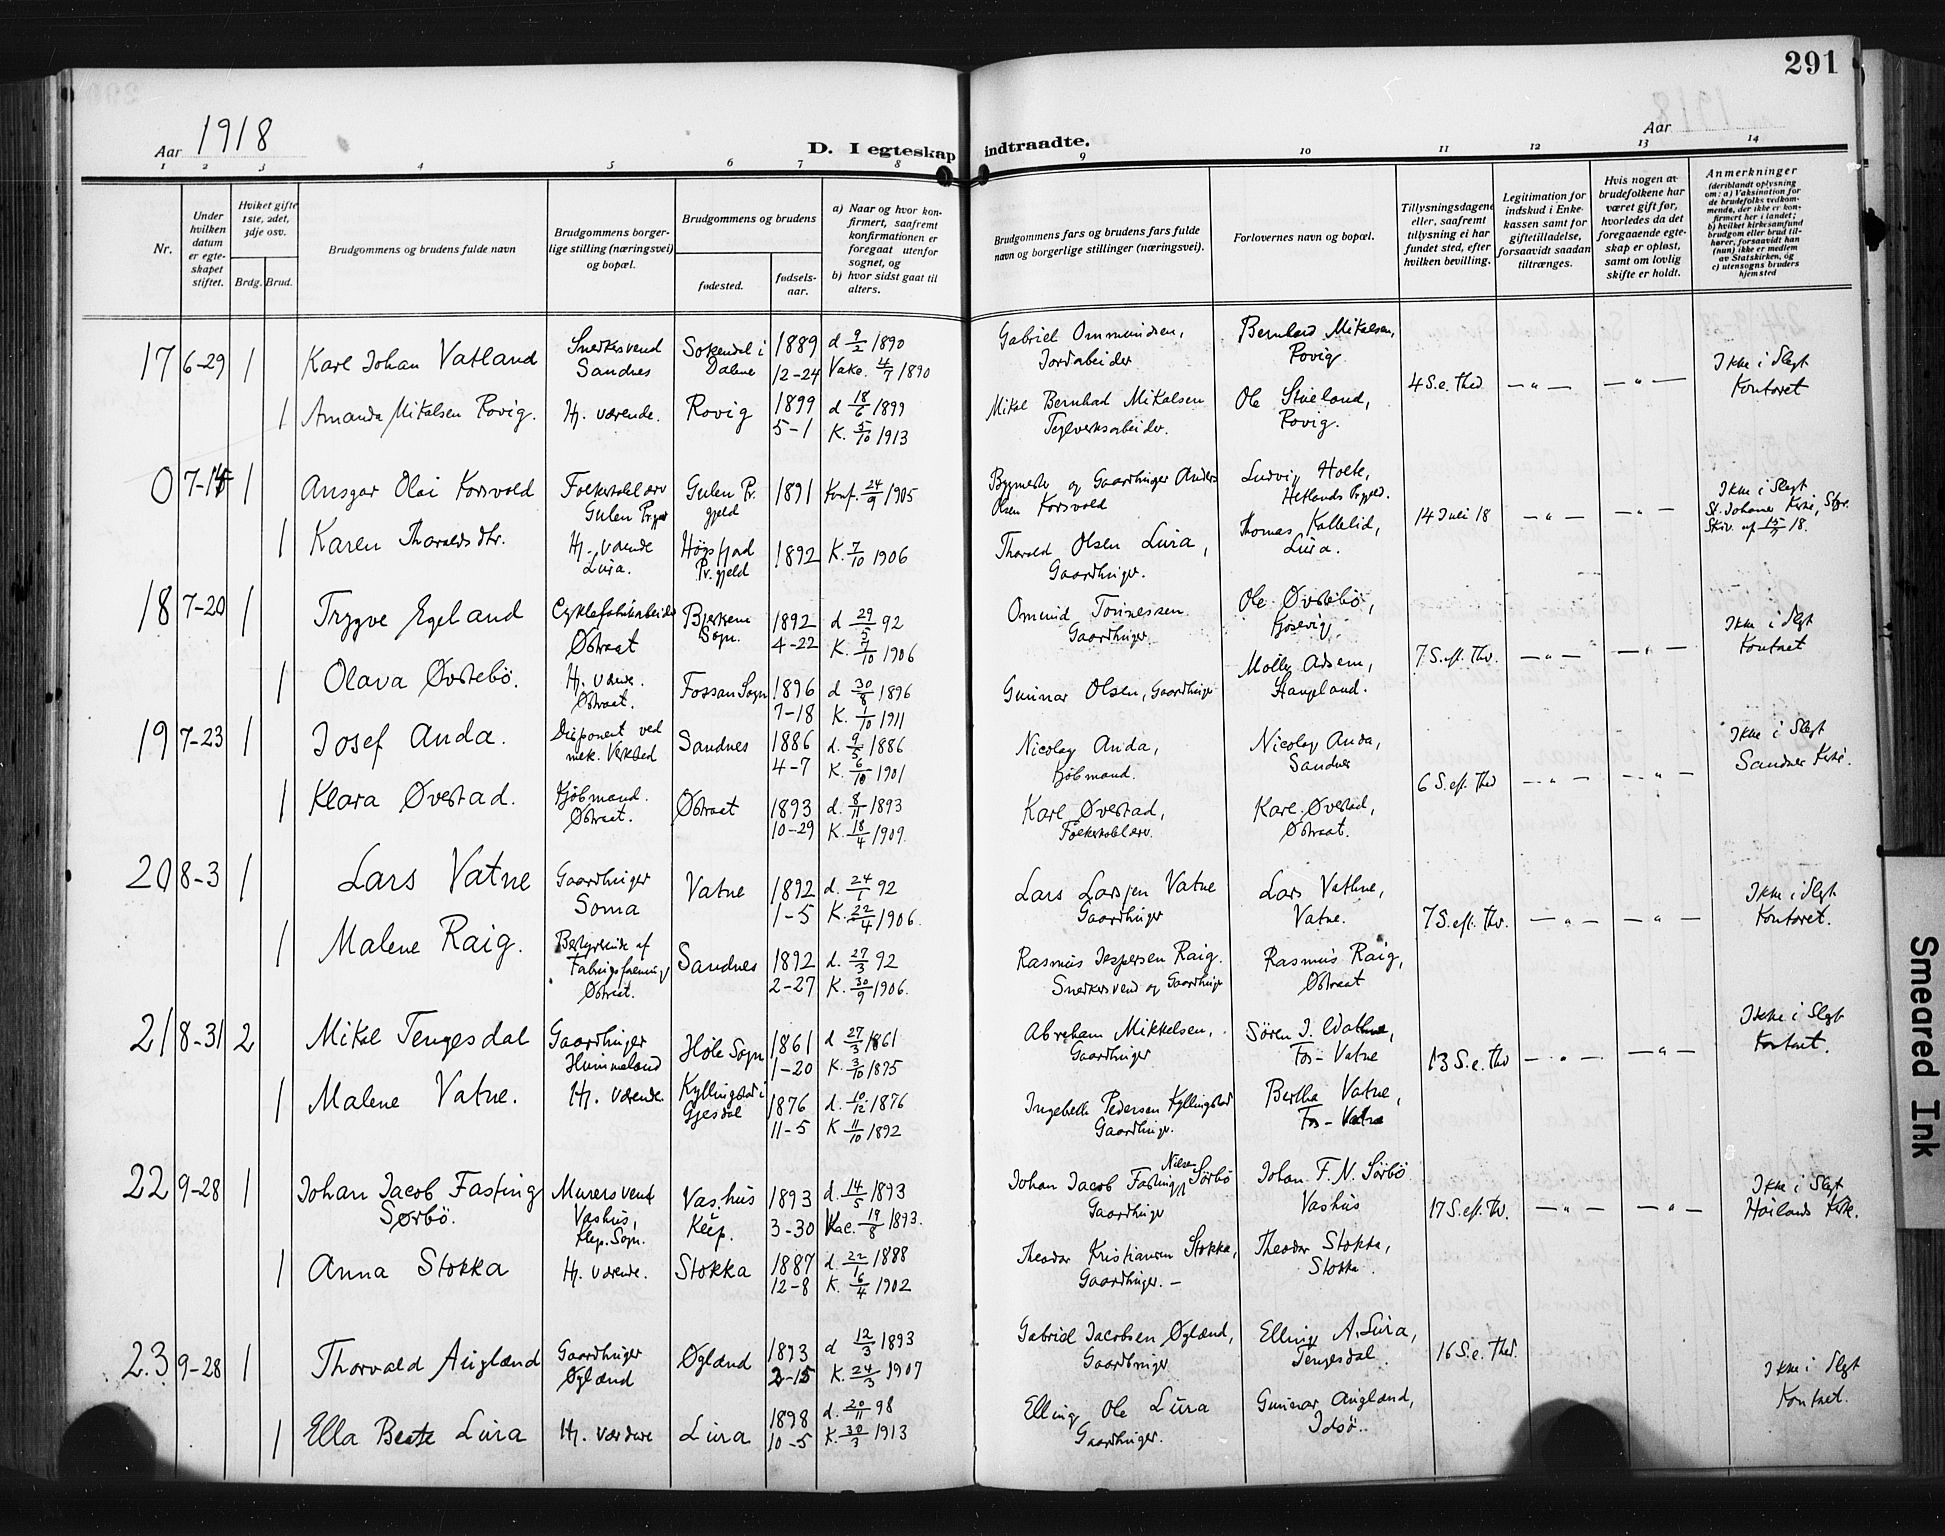 291
Aar 1918
Aar
D. I egteskap indtraadte.
1 2 3 4 5 6 7 8 9 10 11 12 13 14
Nr.
Under hvilken datum er egteskapet stiftet.
Hviket gifte 1ste, 2det, 3dje osv.
Brdg. Brud.
Brudgommens og brudens fulde navn
Brudgommens borgerlige stilling (næringsvei) og bopæl.
Brudgommens og brudens
fødested.
fødselsaar.
a) Naar og hvor konfirmert, saafremt konfirmationen er foregaat utenfor sognet, og
b) hvor sidst gaat til alters.
Brudgommens fars og brudens fars fulde navn og borgerlige stillinger (næringsvei).
Forlovernes navn og bopæl.
Tillysningsdagene eller, saafremt tillysning ei har fundet sted, efter hvilken bevilling.
Legitimation for indskud i Enkekassen samt for giftetilladelse, forsaavidt saadan tiltrænges.
Hvis nogen av brudefolkene har været gift før, hvorledes da det foregaaende egteskap er opløst, samt om lovlig skifte er holdt.
Anmerkninger
(deriblandt oplysning om: a) Vaksination for de brudefolks vedkommende, der ikke er konfirmert her i landet; b) hvilket kirkesamfund brudgom eller brud tilhører, forsaavidt han (hun) ikke er medlem av Statskirken, og c) utensogns bruders hjemsted
17 6-29 1 Karl Johan Vatland Snedkersvend Sandnes Sokendal i Dalene 1889 12-24 d 9/2 1890 Vakc. 4/7 1890 Gabriel Ommundsen, Jordarbeider Bernhard Mikalsen, Rovig. 4 S. e. Thed — " — — " — Ikke i Slegt Kontoret
1 Amanda Mikalsen Rovig. Hj. værende. Rovig 1899 5-1 d 18/6 1899 K. 5/10 1913 Mikal Bernhad Mikalsen Teglverksarbeider. Ole Stueland, Rovig.
0 7-14 1 Ansgar Olai Korsvold Folkeskolelærer Gulen Pr.gjeld Gulen Pr.gjeld 1891 Konf. 24/9 1905 Bygmester og Gaardbruger Anders Olsen Korsvold Ludvig Holte, Hetlands Prgjeld. 14 Juli 18 — " — — " — Ikke i Slegt St. Johannes Kirke, Stvgr.
1 Karen Thoralds dtr. Hj. værende Lura. Høgsfjord Pr.gjeld 1892 K. 7/10 1906 Thorald Olsen Lura, Gaardbruger. Thomas Kallelid, Lura.
18 7-20 1 Trygve Egeland Cyklefabrikarbeider Østraat Bjerkrem Sogn. 1892 4-22 d 29/5 92 K. 7/10 1906 Ommund Tonnessen Gaardbruger Ole Øvstebö, Kjosevig. 7 S. ef. Thr. — " — — " — Ikke i Slegt Kontoret
1 Olava Øvstebö. Hj. være. Østraat. Fossan Sogn 1896 7-18 d 30/8 1896 K. 1/10 1911 Gunnar Olsen, Gaardbruger Molly Adsem, Stangeland.
19 7-23 1 Josef Anda. Disponent ved mek. Verksted Sandnes 1886 4-7 d. 9/5 1886 K. 6/10 1901 Nicolay Anda, Kjöbmand. Nicolay Anda, Sandnes 6 S. ef. Thed — " — — " — Ikke i Slegt Sandnes Kirke.
1 Klara Øvestad. Kjöbmand. Østraat. Østraat 1893 10-29 d. 8/11 1893 K. 18/4 1909. Karl Øvestad, Folkeskolelærer. Karl Øvestad, Østraat.
20 8-3 1 Lars Vatne Gaardbruger Soma Vatne 1892 1-5 d. 24/1 92 K. 22/4 1906. Lars Larssen Vatne Gaardbruger Lars Vathne, Vatne. 7 S. ef. Thr. — " — — " — Ikke i Slegt Kontoret.
1 Malene Raig. Bestyrende af Østraat. Sandnes 1892 2-27 d. 27/3 92 K. 30/9 1906. Rasmus Jespersen Raig. Snedkersvend og Gaardbruger Rasmus Raig, Østraat
21 8-31 2 Mikal Tengesdal Gaardbruger Hommeland Høle Sogn 1861 1-20 d 27/3 1861 K. 3/10 1875 Abraham Mikkelsen, Gaardbruger Søren J. Wathne, Fos-Vatne 13 S. e. Thr — " — — " — Ikke i Slegt Kontoret.
1 Malene Vatne. Hj. værende. Kyllingstad i Gjesdal 1876 11-5 d. 10/12 1876 K 11/10 1892 Ingebreth Pedersen Kyllingstad Gaardbruger. Bertha Vatne, Fos-Vatne
22 9-28 1 Johan Jacob Fasting Sørbö. Murersvend Vashus, Klep. Sogn. Vashus Klep. 1893 3-30 d. 14/5 1893 Vac. 19/8 1893. Johan Jacob Fasting Nilsen Sørbö Gaardbruger Johan F. N. Sörbö Vashus 17 S. ef. Thr. — " — — " — Ikke i Slegt Höilands Kirke.
1 Anna Stokka Hj. værende. Stokka 1887 12-8 d. 22/1 1888 K. 16/4 1902 Theodor Kristiansen Stokka, Gaardbruger. — Theodor Stokka, Stokka.
23 9-28 1 Thorvald Auglænd Gaardbruger Øglænd Øglænd 1893 2-15 d 12/3 1893 K. 24/3 1907 Gabriel Jacobsen Øglænd, Gaardbruger Elling A. Lura, Tengesdal. 16 S. e. Thed. Ikke i Slegt Kontoret.
1 Ella Beate Lura Hj. værdere Lura 1898 10-5 d. 20/11 98 K. 30/3 1913 Elling Ole Lura Gaardbruger. Gunnar Auglænd, Idsö.
Smeared Ink